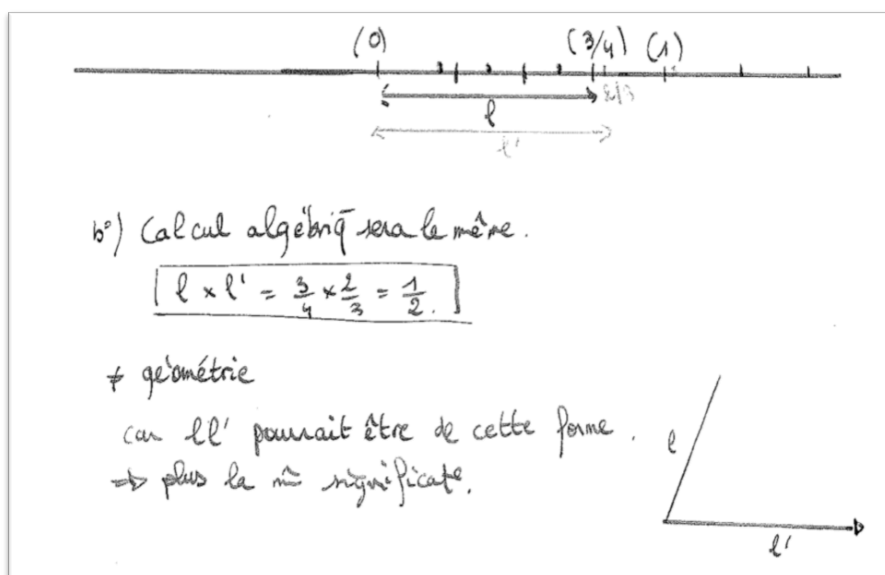 (0) (3/4) (1)
2/3
l
l'
b°) Calcul algébriq̄ sera le même.
l × l' = 3/4 × 2/3 = 1/2.
≠ géométrie
car ll' pourrait être de cette forme.
⇒ plus la m̂ significat°.
l
l'